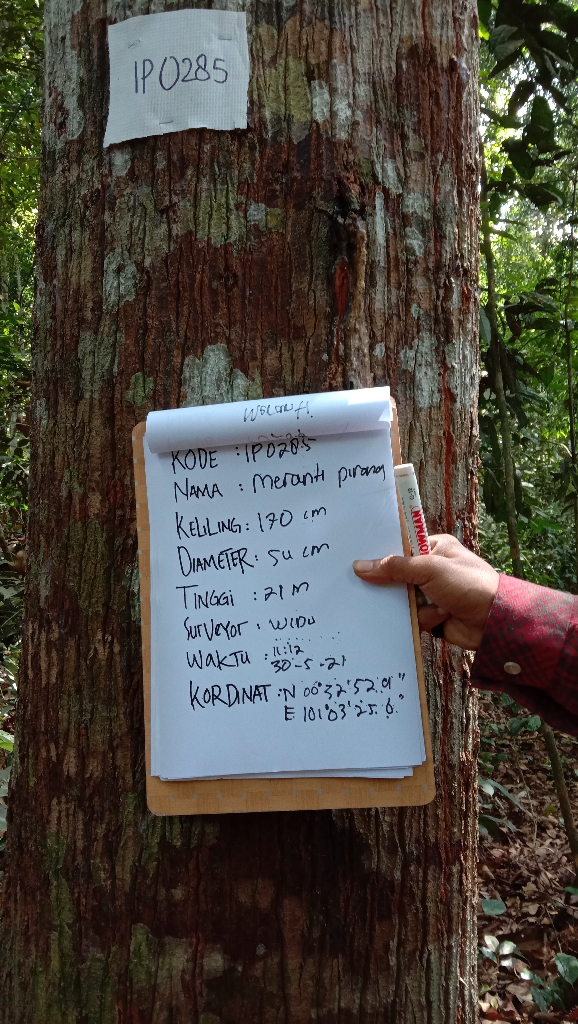 IP0285
KODE : IP0285
NAMA : meranti pinang
KELILING : 170 cm
DIAMETER : 54 cm
TINGGI : 21 M
SURVEYOR : WIDU
WAKTU : 11:12
30-5-21
KORDINAT : N 00°32'52.01"
E 101°03'25.6"
SNOWMAN